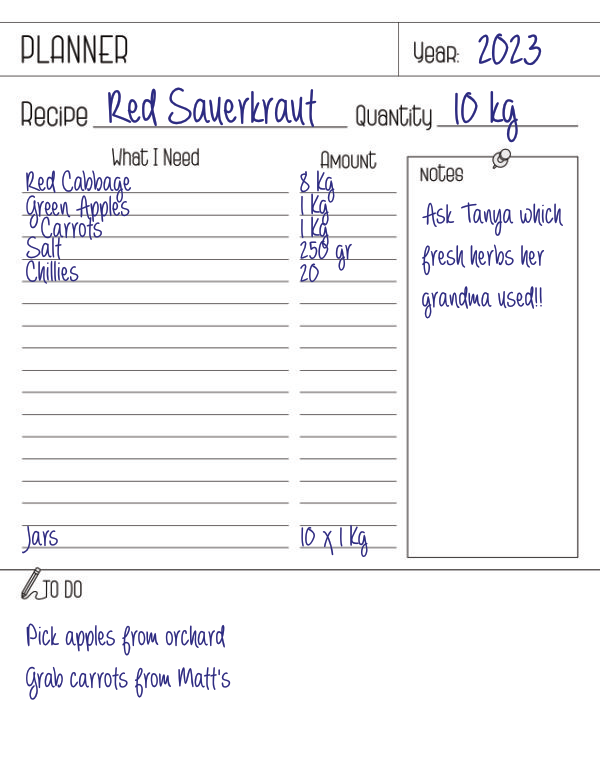 PLANNER
Year: 2023
Recipe Red Sauerkraut Quantity 10 kg
What I Need Amount
Red Cabbage 8 kg
Green Apples 1 kg
Carrots 1 kg
Salt 250 gr
Chillies 20
Jars 10 x 1 kg
Notes
Ask Tanya which
fresh herbs her
grandma used!!
TO DO
Pick apples from orchard
Grab carrots from Matt's